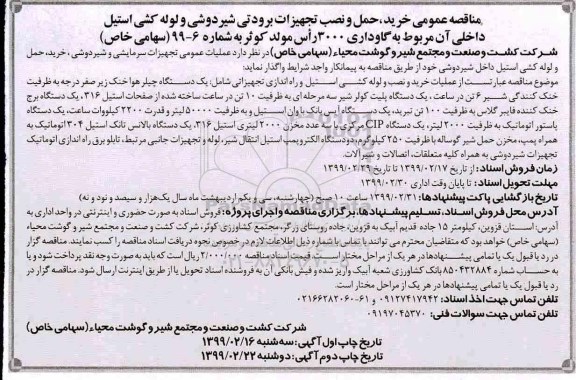 مناقصه عمومی خرید، حمل و نصب تجهیزات برودتی شیردوشی و لوله کشی استیل
داخلی آن مربوط به گاوداری ۳۰۰۰ رأس مولد کوثر به شماره ۶-۹۹ (سهامی خاص)
شرکت کشت و صنعت و مجتمع شیر و گوشت محیاء (سهامی خاص) در نظر دارد عملیات عمومی تجهیزات سرمایشی و شیردوشی، خرید، حمل
و لوله کشی استیل داخل شیردوشی خود از طریق مناقصه به پیمانکار واجد شرایط واگذار نماید:
موضوع مناقصه عبارتست از عملیات خرید و نصب و لوله کشی استیل و راه اندازی تجهیزاتی شامل: یک دستگاه چیلر هوا خنک زیر صفر درجه به ظرفیت
خنک کنندگی شیر ۶ تن در ساعت، یک دستگاه پلیت کولر شیر سه مرحله ای به ظرفیت ۱۰ تن در ساعت ساخته شده از صفحات استیل ۳۱۶، یک دستگاه برج
خنک کننده فایبر گلاس به ظرفیت ۱۰۰ تن تبرید، یک دستگاه آیس بانک با وان استیل و به ظرفیت ۵۰۰۰۰ لیتر و قدرت ۲۲۰۰ کیلووات ساعت، یک دستگاه
پاستور اتوماتیک به ظرفیت ۲۰۰۰ لیتر، یک دستگاه CIP مرکزی با عدد مخزن ۲۰۰۰ لیتری استیل ۳۱۶، یک دستگاه بالانس تانک استیل ۳۰۴ اتوماتیک به
همراه پمپ، مخزن حمل شیر گوساله با ظرفیت ۲۵۰ کیلوگرم، دو دستگاه الکتروپمپ استیل انتقال شیر، لوله و تجهیزات جانبی مرتبط، تابلو برق و راه اندازی اتوماتیک
تجهیزات شیردوشی به همراه کلیه متعلقات، اتصالات و شیرآلات.
زمان فروش اسناد: از تاریخ ۱۳۹۹/۰۲/۱۷ تا تاریخ ۱۳۹۹/۰۲/۲۹
مهلت تحویل اسناد: تا پایان وقت اداری ۱۳۹۹/۰۲/۳۰
تاریخ بازگشایی پاکت پیشنهادها: ۱۳۹۹/۰۲/۳۱ ساعت ۱۰ صبح (چهارشنبه، سی و یکم اردیبهشت ماه سال یک هزار و سیصد و نود و نه)
آدرس محل فروش اسناد، تسلیم پیشنهادها، برگزاری مناقصه و اجرای پروژه: فروش اسناد به صورت حضوری و اینترنتی در واحد اداری به
آدرس: استان قزوین، کیلومتر ۱۵ جاده قدیم آبیک به قزوین، جاده روستای زرگر، مجتمع کشاورزی کوثر، شرکت کشت و صنعت و مجتمع شیر و گوشت محیاء
(سهامی خاص) خواهد بود که متقاضیان محترم می توانند با تماس با شماره ذیل اطلاعات لازم در خصوص نحوه دریافت اسناد مناقصه را کسب نمایند. مناقصه گزار
در رد یا قبول یک یا تمامی پیشنهادها در هر یک از مراحل مختار است. قیمت فروش اسناد مناقصه ۲/۰۰۰/۰۰۰ ریال است که باید به صورت وجه نقد پرداخت شود و یا
به حساب شماره ۸۵۰۴۳۲۸۸۴ بانک کشاورزی شعبه آبیک واریز شده و فیش بانکی آن به فروشنده اسناد تحویل یا از طریق اینترنت ارسال شود. مناقصه گزار در
رد یا قبول یک یا تمامی پیشنهادها در هر یک از مراحل مختار است.
تلفن تماس جهت اخذ اسناد: ۰۹۱۲۷۴۱۷۹۴۲ و ۶۱-۰۲۱۶۶۲۸۲۰۶۰
تلفن تماس جهت سوالات فنی: ۰۹۱۹۷۰۴۵۳۷۰
شرکت کشت و صنعت و مجتمع شیر و گوشت محیاء (سهامی خاص)
تاریخ چاپ اول آگهی: سه شنبه ۱۳۹۹/۰۲/۱۶
تاریخ چاپ دوم آگهی: دوشنبه ۱۳۹۹/۰۲/۲۲